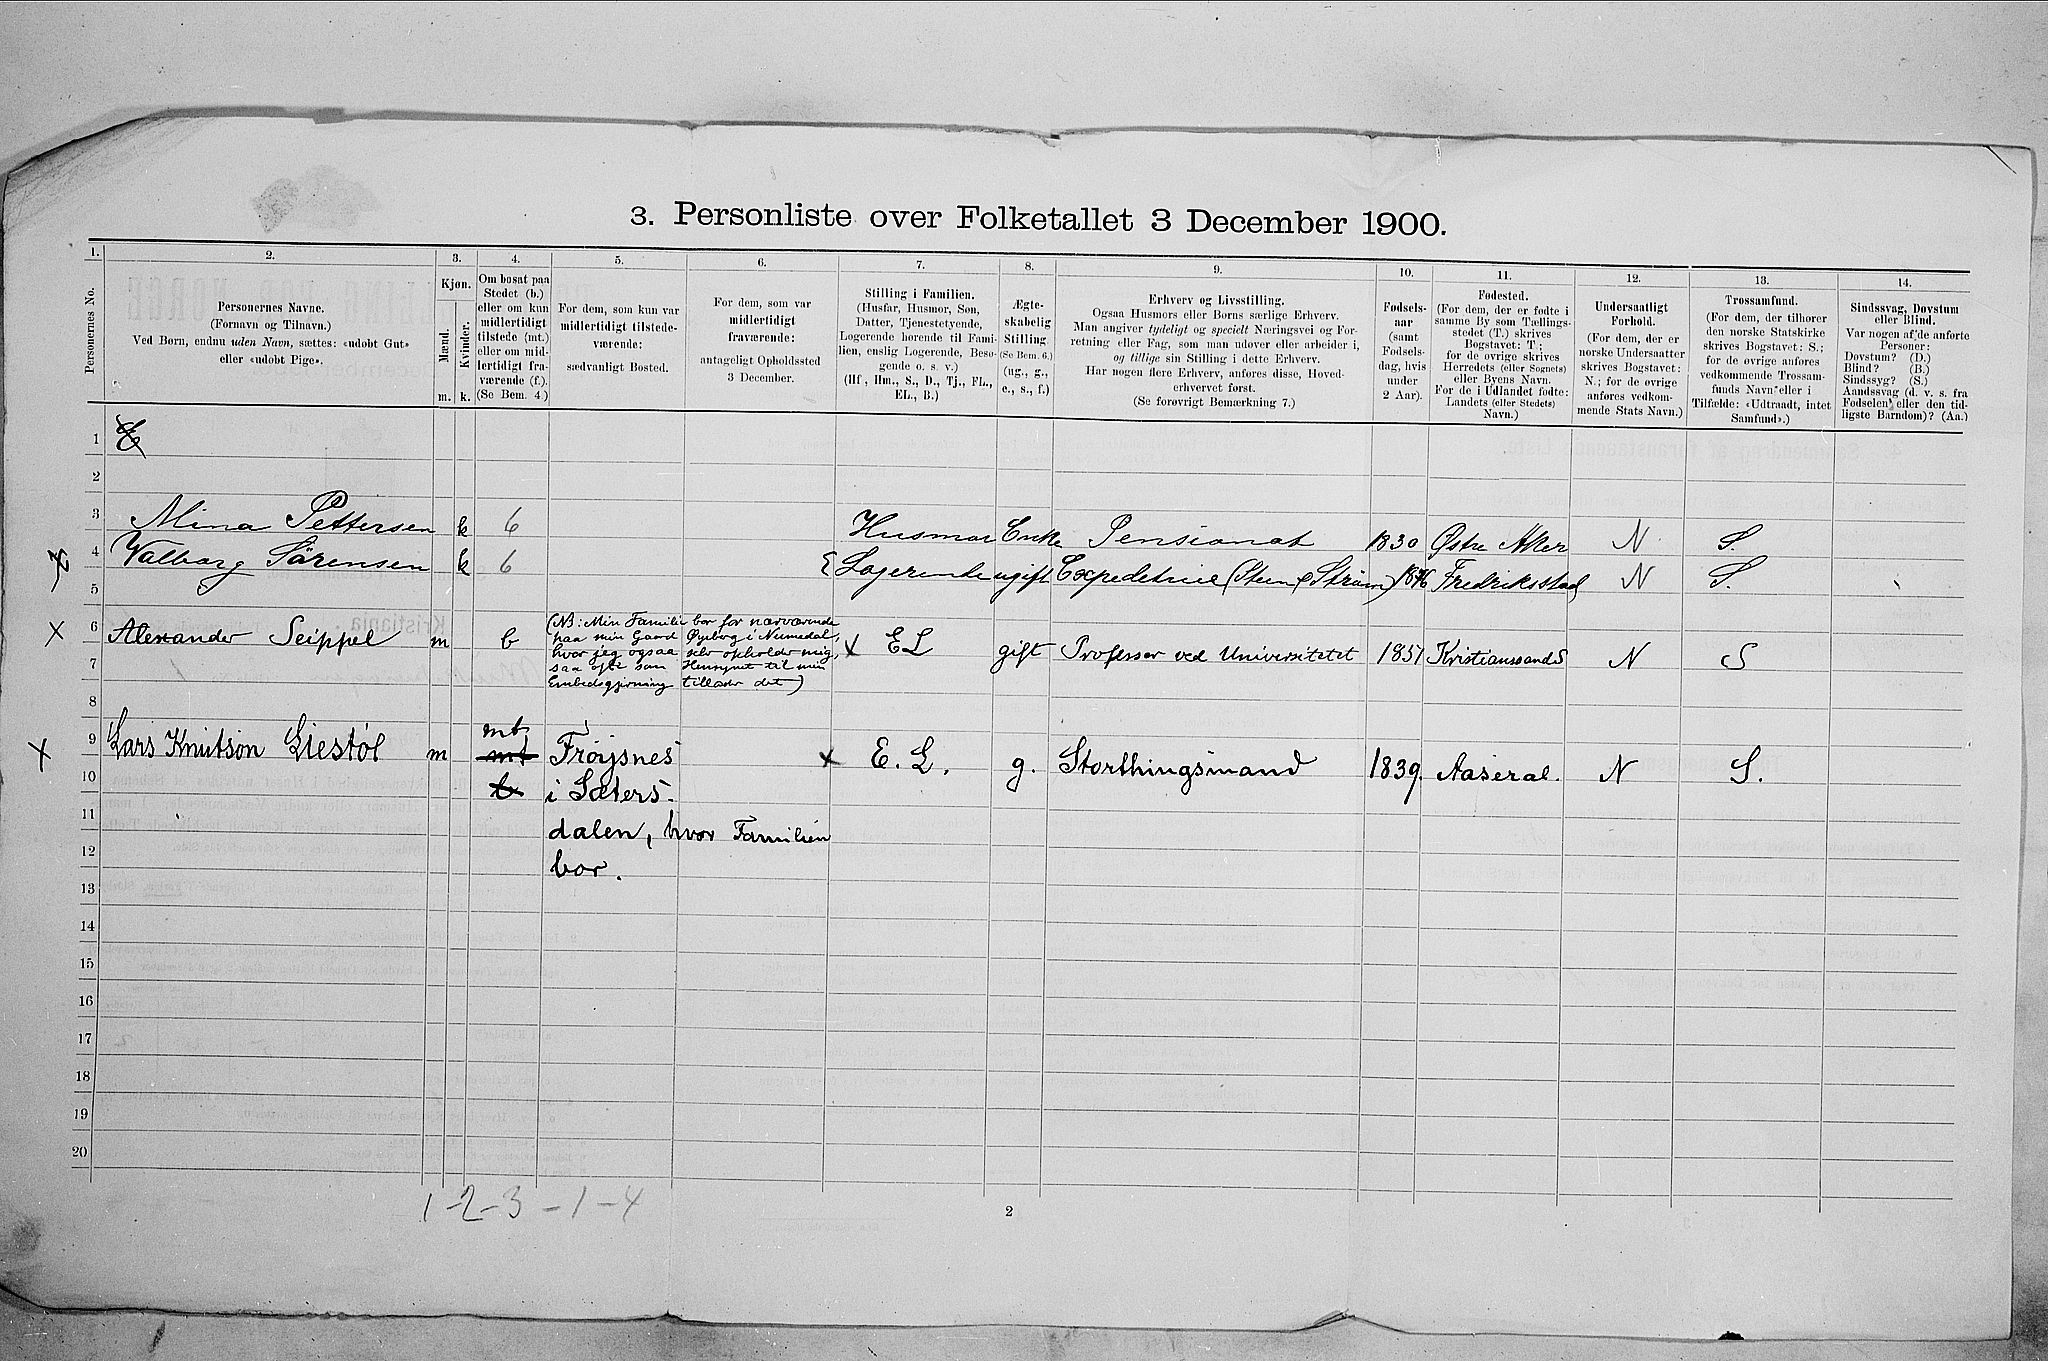 3. Personliste over Folketallet 3 December 1900.
1. 2. 3. 4. 5. 6. 7. 8. 9. 10. 11. 12. 13. 14.
Personernes No.
Personernes Navne.
(Fornavn og Tilnavn.)
Ved Børn, endnu uden Navn, sættes: «udøbt Gut»
eller «udøbt Pige».
Kjøn.
Mænd.
Kvinder.
m. k.
Om bosat paa
Stedet (b.)
eller om kun
midlertidigt
tilstede (mt.)
eller om mid-
lertidigt fra-
værende (f.).
(Se Bem. 4.)
For dem, som kun var
midlertidigt tilstede-
værende:
sædvanligt Bosted.
For dem, som var
midlertidigt
fraværende:
antageligt Opholdssted
3 December.
Stilling i Familien.
(Husfar, Husmor, Søn,
Datter, Tjenestetyende,
Logerende hørende til Fami-
lien, enslig Logerende, Besø-
gende o. s. v.)
(Hf., Hm., S., D., Tj., FL.,
EL., B.)
Ægte-
skabelig
Stilling.
(Se Bem. 6.)
(ug., g.,
e., s., f.)
Erhverv og Livsstilling.
Ogsaa Husmors eller Børns særlige Erhverv.
Man angiver tydeligt og specielt Næringsvei og For-
retning eller Fag, som man udøver eller arbeider i,
og tillige sin Stilling i dette Erhverv.
Har nogen flere Erhverv, anføres disse, Hoved-
erhvervet først.
(Se forøvrigt Bemærkning 7.)
Fødsels-
aar
(samt
Fødsels-
dag, hvis
under
2 Aar).
Fødested.
(For dem, der er fødte i
samme By som Tællings-
stedet (T.) skrives
Bogstavet: T.;
for de øvrige skrives
Herredets (eller Sognets)
eller Byens Navn.
For de i Udlandet fødte:
Landets (eller Stedets)
Navn.)
Undersaatligt
Forhold.
(For dem, der er
norske Undersaatter
skrives Bogstavet:
N.; for de øvrige
anføres vedkom-
mende Stats Navn.)
Trossamfund.
(For dem, der tilhører
den norske Statskirke
skrives Bogstavet: S.;
for de øvrige anføres
vedkommende Trossam-
funds Navn eller i
Tilfælde: «Udtraadt, intet
Samfund».)
Sindssvag, Døvstum
eller Blind.
Var nogen af de anførte
Personer:
Døvstum? (D.)
Blind? (B.)
Sindssyg? (S.)
Aandssvag (d. v. s. fra
Fødselen eller den tid-
ligste Barndom)? (Aa.)
1
2
3 Mina Pettersen k b Husmor Enke Pensionat 1830 Østre Aker N S.
4 Valborg Sørensen k b E Logerende ugift Expeditrice (Steen & Strøm) 1876 Fredriksstad N S.
5
6 X Alexander Seippel m b X EL gift Professor ved Universitetet 1851 Kristianssands N S
(NB: Min Familie bor for nærværende
paa min Gaard Øyeborg i Numedal,
hvor jeg ogsaa selv opholder mig,
saa ofte som Hensynet til min
Embedsgjerning tillader det)
7
8
9 X Lars Knutson Liestøl m mt mt Frøysnes X E. L. g. Storthingsmand 1839. Aaseral. N S.
10 b i Sæters-
11 dalen, hvor Familien
12 bor.
13
14
15
16
17
18
19
20
1-2-3-1-4
2